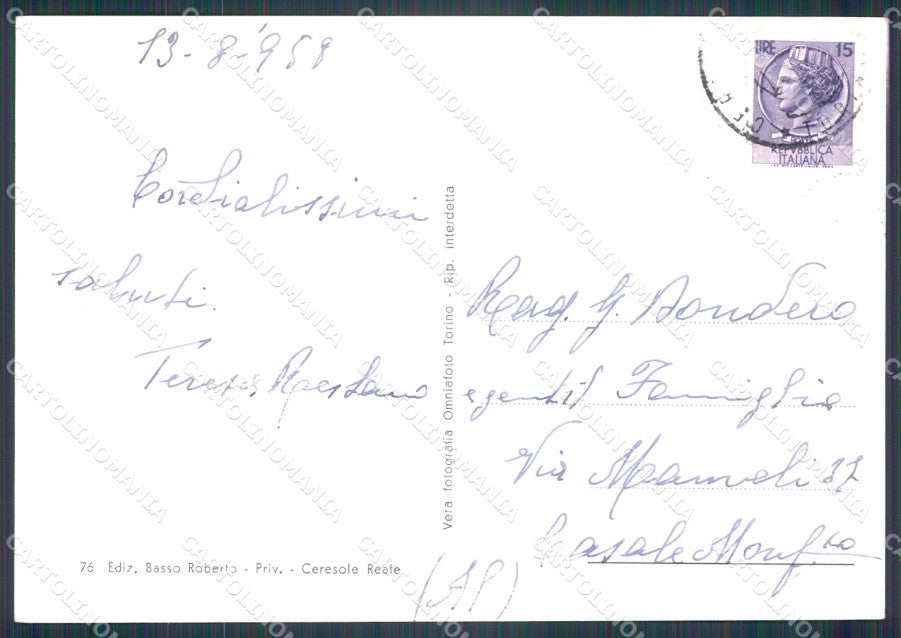 13-8-958
Cordialissimi
saluti.
Teresa
LIRE 15
REPVBBLICA
ITALIANA
Rag. G. Bondero
e gentil Famiglia
Via Mameli 37
Casale Monf.to
(Al)
Vera fotografia Omniafoto Torino - Rip. interdetta
76 Ediz. Basso Roberto - Priv. - Ceresole Reale
CARTOLINOMANIA